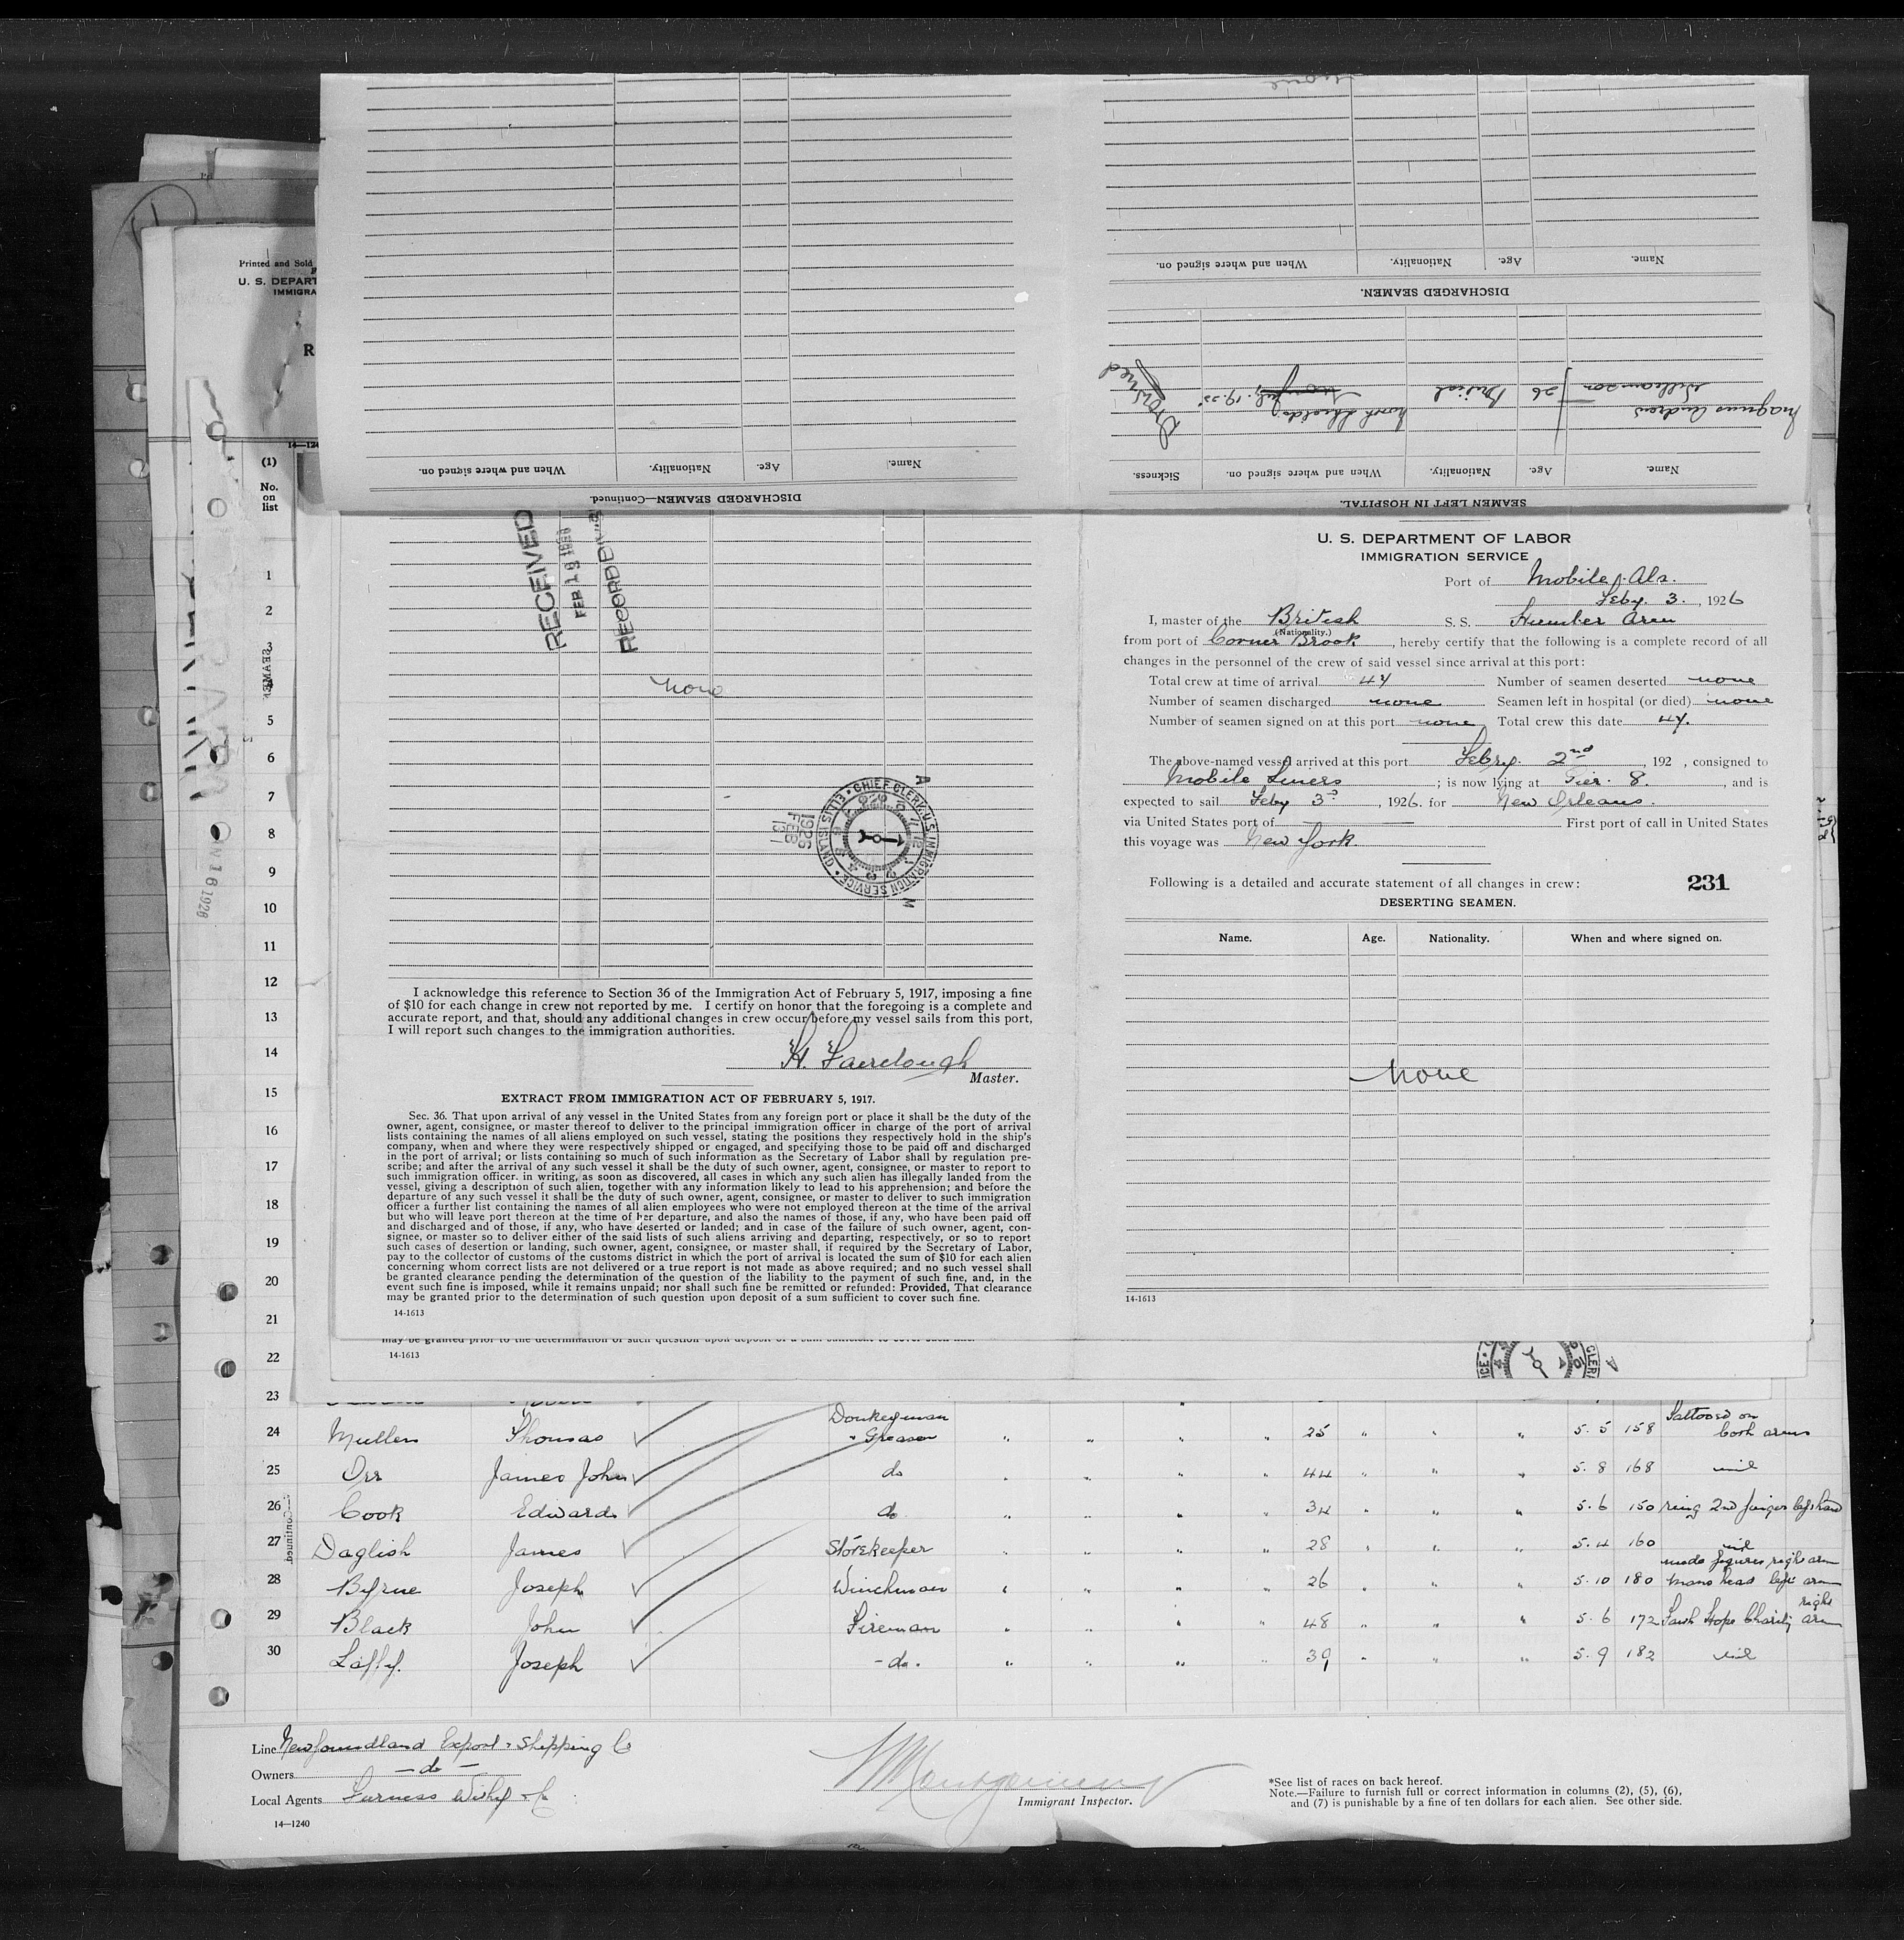 Printed and Sold
U. S. DEPART
IMMIGRA
R
14—124
(1)
No.
on
list
SEAMEN
1
2
3
4
5
6
7
8
9
10
11
12
13
14
15
16
17
18
19
20
21
22
23
24
25
26
27
28
29
30
Continued
DISCHARGED SEAMEN.
Name.
Age.
Nationality.
When and where signed on.
SEAMEN LEFT IN HOSPITAL.
Name.
Age.
Nationality.
When and where signed on.
Sickness.
Magnus Andrew
Williamson
26
British
North Shields
July. 19. 25
Drowned
DISCHARGED SEAMEN—Continued.
Name.
Age.
Nationality.
When and where signed on.
RECEIVED
FEB 19 1926
RECORD DIV
none
CHIEF CLERK U.S. IMMIGRATION SERVICE • ELLIS ISLAND •
1926
FEB
A
M
I acknowledge this reference to Section 36 of the Immigration Act of February 5, 1917, imposing a fine
of $10 for each change in crew not reported by me. I certify on honor that the foregoing is a complete and
accurate report, and that, should any additional changes in crew occur before my vessel sails from this port,
I will report such changes to the immigration authorities.
H. Fairclough
Master.
EXTRACT FROM IMMIGRATION ACT OF FEBRUARY 5, 1917.
Sec. 36. That upon arrival of any vessel in the United States from any foreign port or place it shall be the duty of the
owner, agent, consignee, or master thereof to deliver to the principal immigration officer in charge of the port of arrival
lists containing the names of all aliens employed on such vessel, stating the positions they respectively hold in the ship's
company, when and where they were respectively shipped or engaged, and specifying those to be paid off and discharged
in the port of arrival; or lists containing so much of such information as the Secretary of Labor shall by regulation pre-
scribe; and after the arrival of any such vessel it shall be the duty of such owner, agent, consignee, or master to report to
such immigration officer. in writing, as soon as discovered, all cases in which any such alien has illegally landed from the
vessel, giving a description of such alien, together with any information likely to lead to his apprehension; and before the
departure of any such vessel it shall be the duty of such owner, agent, consignee, or master to deliver to such immigration
officer a further list containing the names of all alien employees who were not employed thereon at the time of the arrival
but who will leave port thereon at the time of her departure, and also the names of those, if any, who have been paid off
and discharged and of those, if any, who have deserted or landed; and in case of the failure of such owner, agent, con-
signee, or master so to deliver either of the said lists of such aliens arriving and departing, respectively, or so to report
such cases of desertion or landing, such owner, agent, consignee, or master shall, if required by the Secretary of Labor,
pay to the collector of customs of the customs district in which the port of arrival is located the sum of $10 for each alien
concerning whom correct lists are not delivered or a true report is not made as above required; and no such vessel shall
be granted clearance pending the determination of the question of the liability to the payment of such fine, and, in the
event such fine is imposed, while it remains unpaid; nor shall such fine be remitted or refunded: Provided, That clearance
may be granted prior to the determination of such question upon deposit of a sum sufficient to cover such fine.
14-1613
may be granted prior to the determination of such question upon deposit of a sum sufficient to cover such fine.
14-1613
U. S. DEPARTMENT OF LABOR
IMMIGRATION SERVICE
Port of Mobile, Ala.
Feby. 3. , 1926
I, master of the British S. S. Humber Arm
(Nationality.)
from port of Corner Brook , hereby certify that the following is a complete record of all
changes in the personnel of the crew of said vessel since arrival at this port:
Total crew at time of arrival 47 Number of seamen deserted none
Number of seamen discharged none Seamen left in hospital (or died) none
Number of seamen signed on at this port none Total crew this date 47.
The above-named vessel arrived at this port Febry. 2nd , 192 , consigned to
Mobile Liners ; is now lying at Pier. 8. , and is
expected to sail Feby 3rd , 1926. for New Orleans.
via United States port of First port of call in United States
this voyage was New York.
Following is a detailed and accurate statement of all changes in crew: 231
DESERTING SEAMEN.
Name. Age. Nationality. When and where signed on.
none
14-1613
Mullen Thomas Donkeyman " Greaser " " " " 25 " " " 5. 5 158 Tattooed on both arms
Orr James John do " " " " 44 " " " 5. 8 168 nil
Cook Edward do " " " " 34 " " " 5. 6 150 ring 2nd finger left hand
Daglish James Storekeeper " " " " 28 " " " 5. 4 160 nil
Byrne Joseph Winchman " " " " 26 " " " 5. 10 180 nude figures right arm mans head left arm
Black John Fireman " " " " 48 " " " 5. 6 172 Faith Hope Charity right arm
Laffy. Joseph - do. " " " " 39 " " " 5. 9 182 nil
Line Newfoundland Export & Shipping Co
Owners — do —
Local Agents Furness Withy & Co
Montgomery
Immigrant Inspector.
*See list of races on back hereof.
Note.—Failure to furnish full or correct information in columns (2), (5), (6),
and (7) is punishable by a fine of ten dollars for each alien. See other side.
14—1240